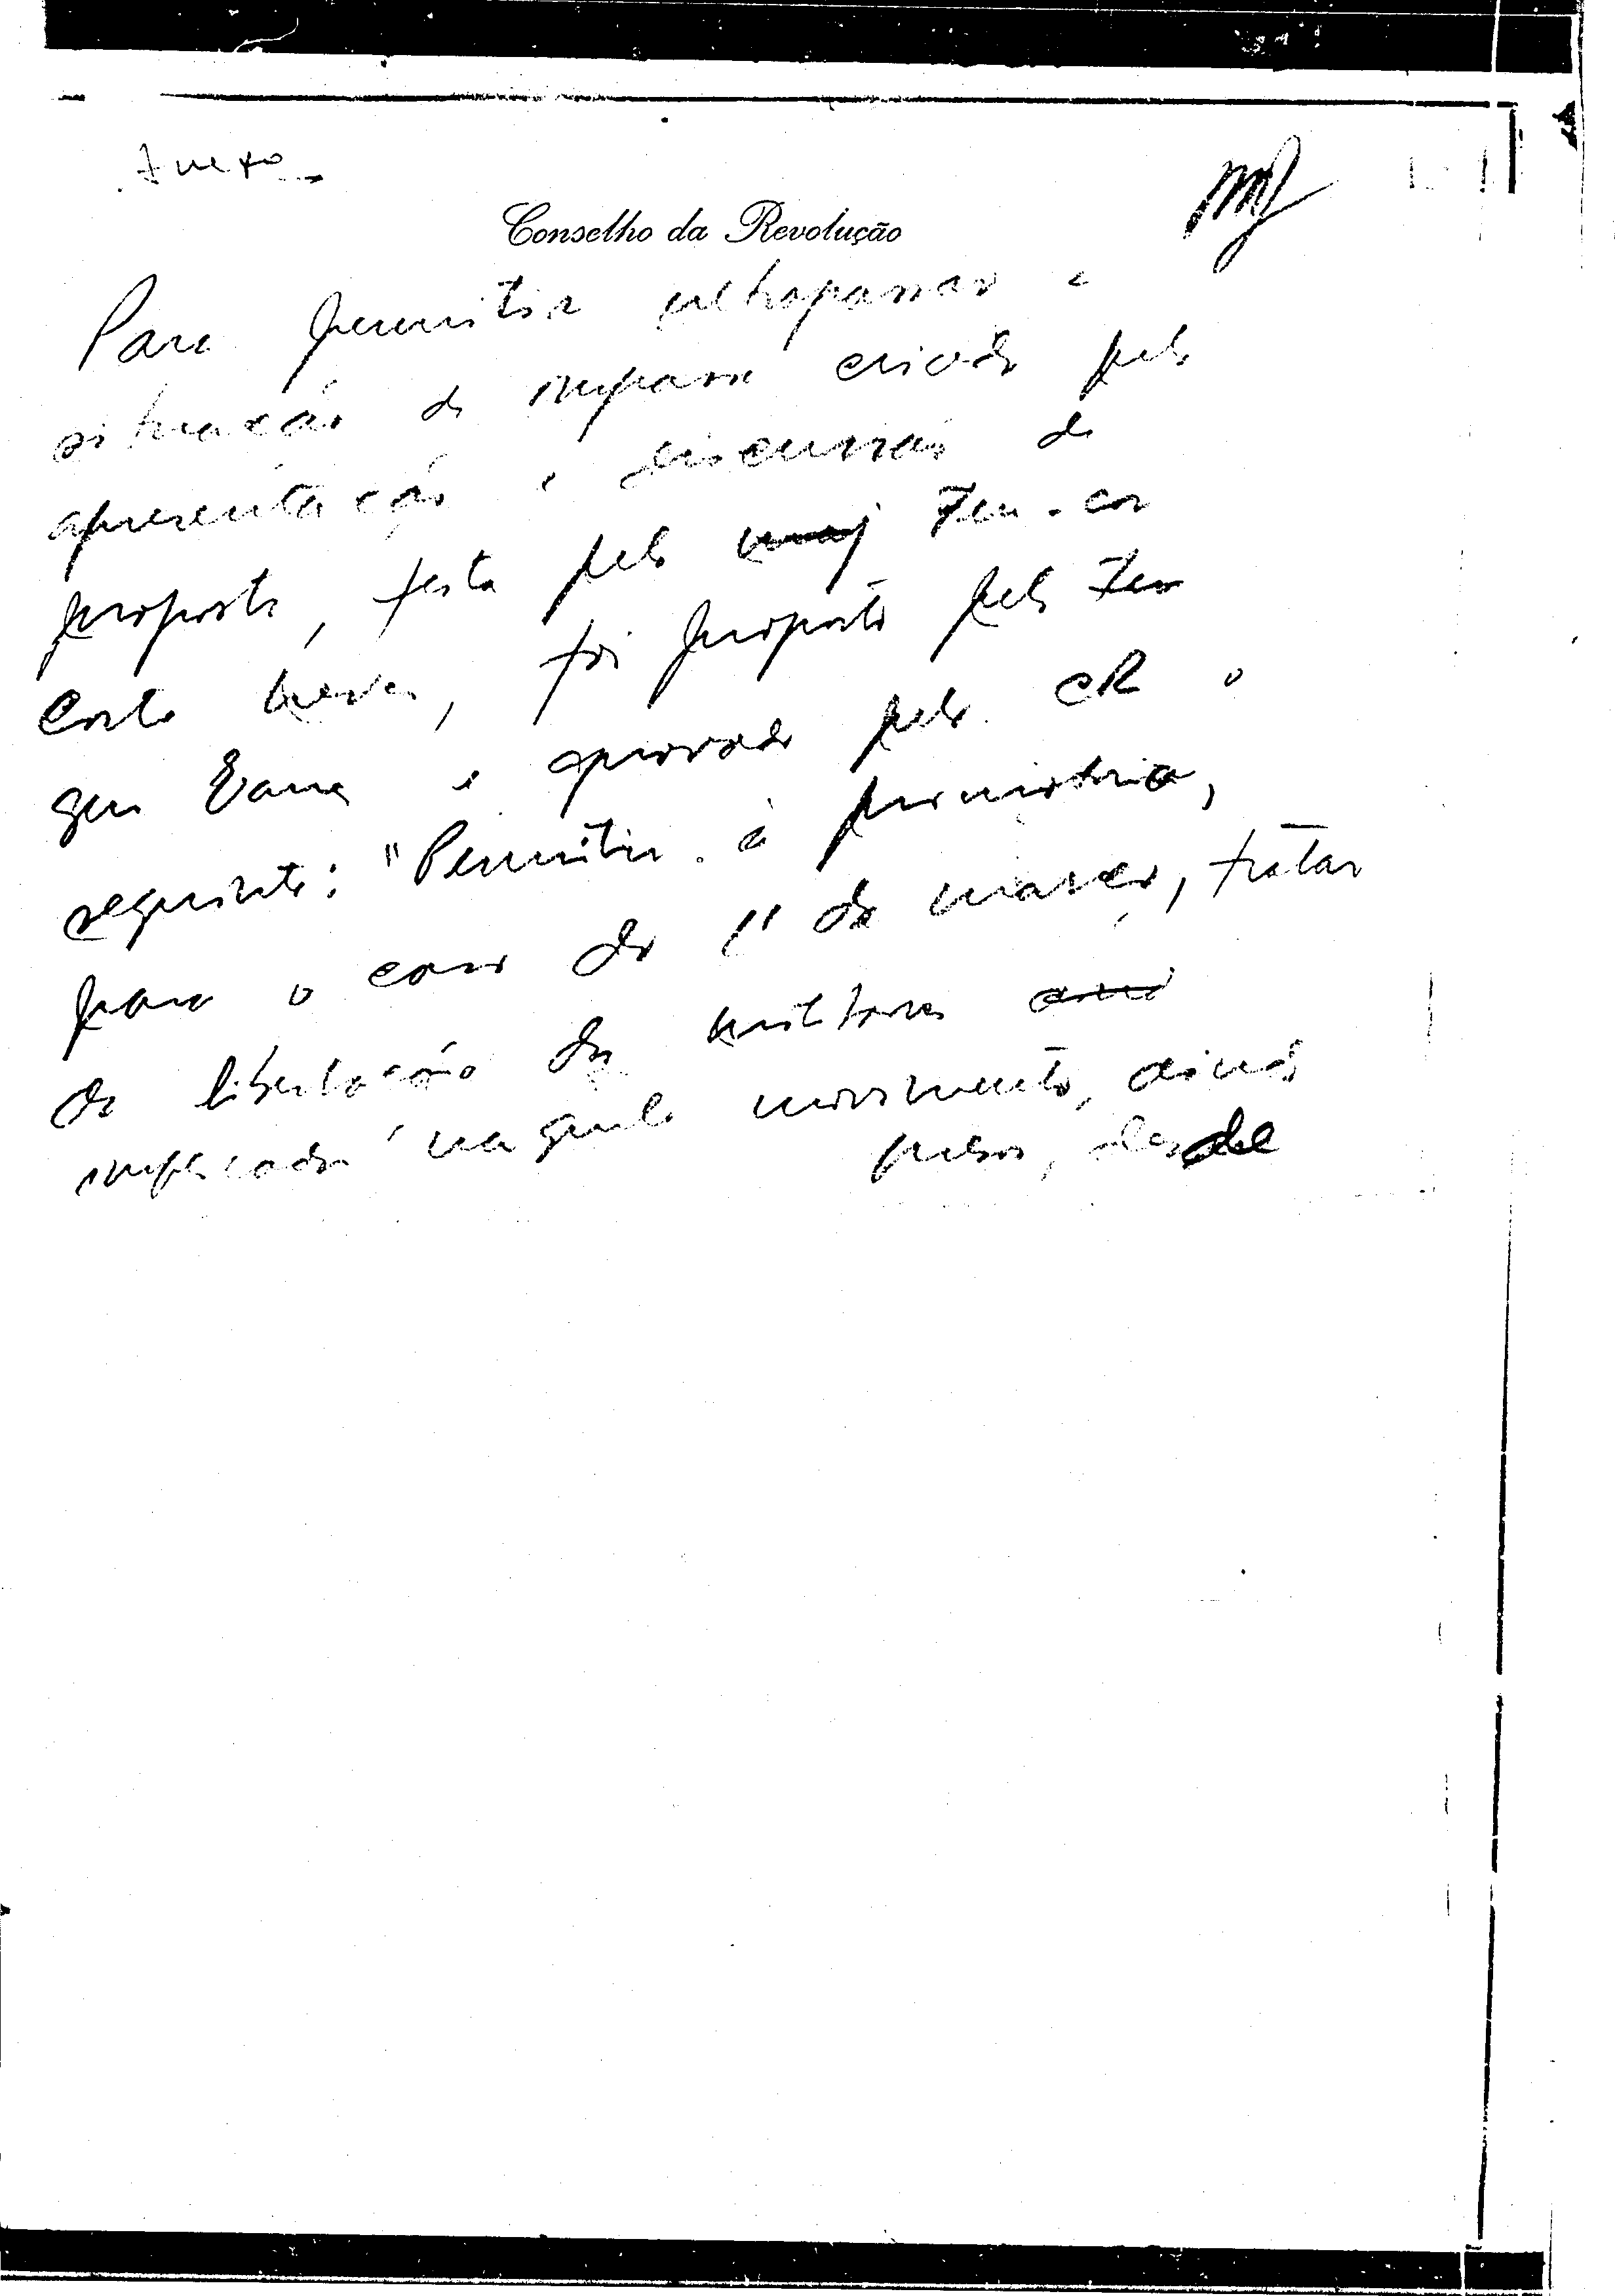 Anexo
Conselho da Revolução
Para permitir ultrapassar a
situação de impasse criada pela
apresentação e discussão da
proposta, feita pelo maj Ten-cor
Costa Neves, foi proposto pelo Ten
gen Vaz e aprovado pelo CR o
seguinte: "Permitir à promotoria,
para o caso do 11 de março, tratar
da libertação dos militares
implicados naquele movimento, ainda
presos, desde